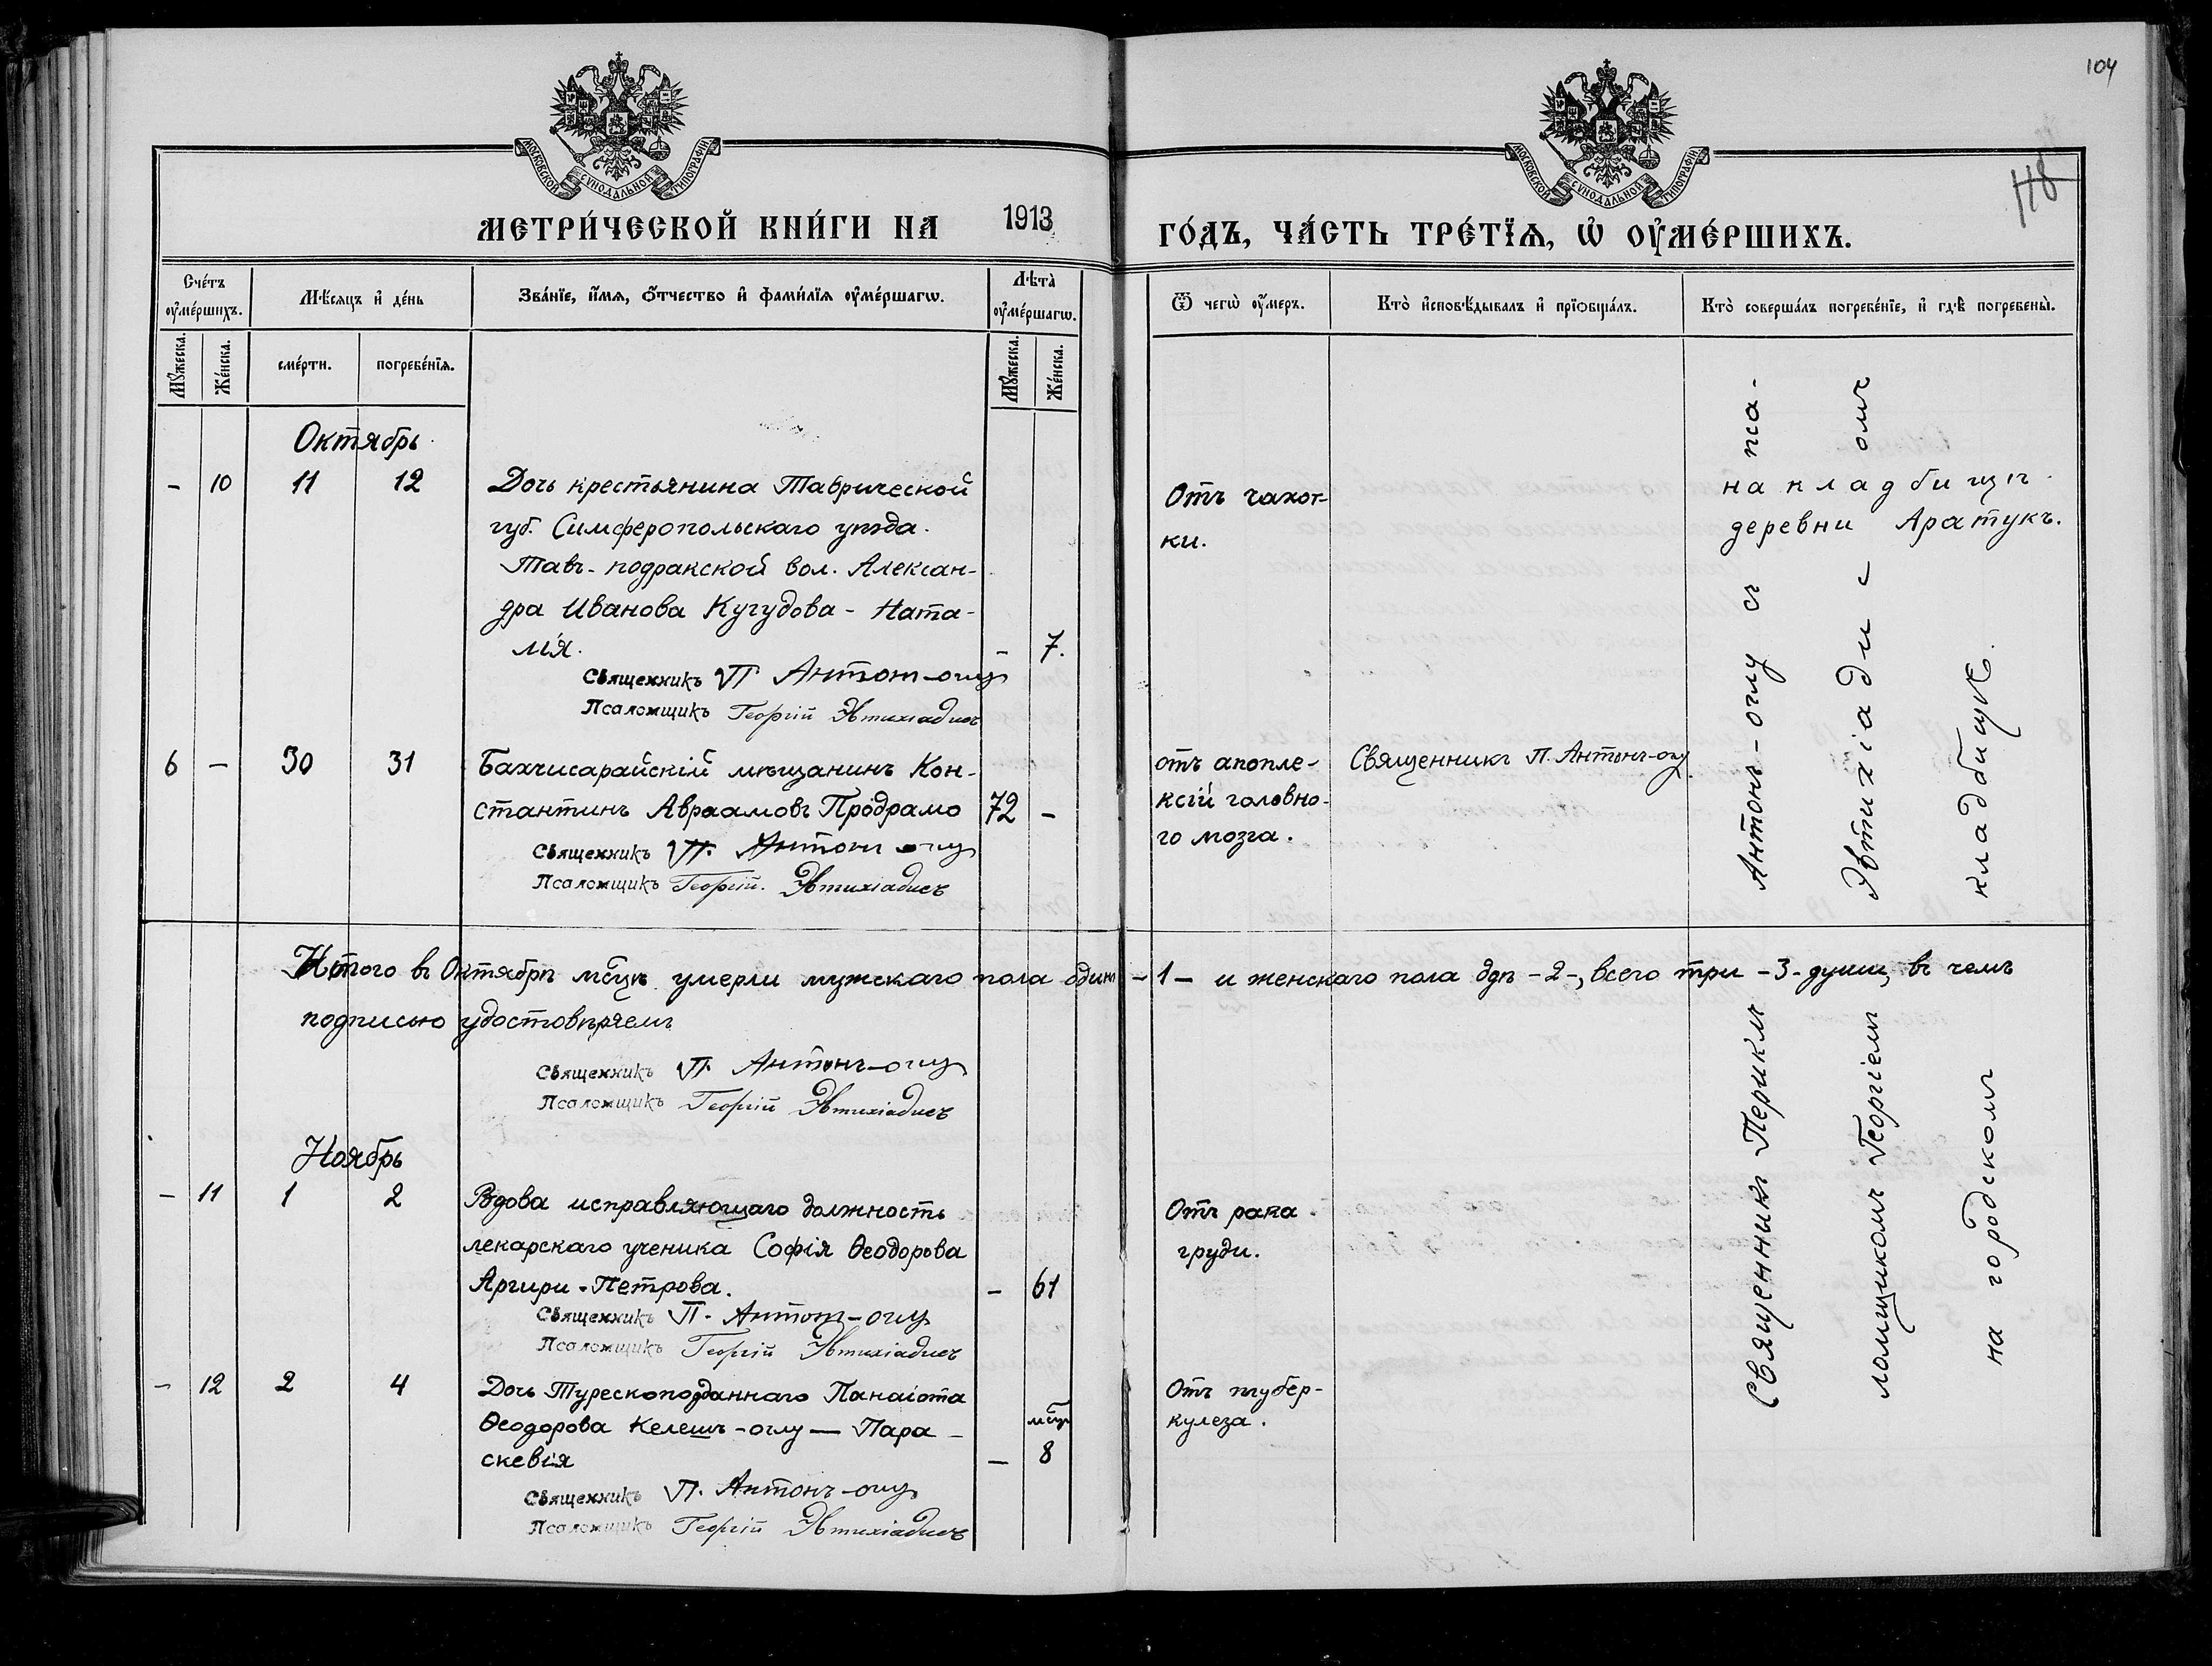 104
118
МОСКОВСКОЙ СѴНОДАЛЬНОЙ ТИПОГРАФІИ
МОСКОВСКОЙ СѴНОДАЛЬНОЙ ТИПОГРАФІИ
МЕТРИ́ЧЕСКОЙ КНИ́ГИ НА 1913 ГО́ДЪ, ЧА́СТЬ ТРЕ́ТЇѦ, Ѡ҆ ОУ҆МЕ́РШИХЪ.
Сче́тъ оу҆ме́ршихъ.
Мѣ́сяцъ и҆ де́нь
Зва́нїе, и҆́мѧ, ѻ҆́тчество и҆ фами́лїѧ оу҆ме́ршагѡ.
Лѣта̀ оу҆ме́ршагѡ.
Ѿ чегѡ̀ оу҆́меръ.
Кто̀ и҆сповѣ́дывалъ и҆ прїѻбща́лъ.
Кто̀ соверша́лъ погребе́нїе, и҆ гдѣ̀ погребены̀.
Мꙋ́жеска.
Же́нска.
сме́рти.
погребе́нїѧ.
Мꙋ́жеска.
Же́нска.
Октябрь
- 10 11 12
Дочь крестьянина Таврической
губ. Симферопольскаго уѣзда.
Тавъ-подракской вол. Алексан-
дра Иванова Кугудова - Ната-
лія. - 7.
Священникъ П Антонъ-оглу
Псаломщикъ Георгій Эвтихіадисъ
Отъ чахот-
ки.
на кладбищѣ
деревни Аратукъ.
6 - 30 31
Бахчисарайскій мѣщанинъ Кон-
стантинъ Авраамовъ Продрамо 72 -
Священникъ П. Антонъ оглу
Псаломщикъ Георгій. Эвтихіадисъ
отъ апопле-
ксіи головно-
го мозга.
Священникъ П. Антонъ-оглу
Итого въ Октябрѣ мѣсцѣ умерли мужскаго пола одинъ - 1 - и женскаго пола двѣ - 2 -, всего три - 3 - души, въ чемъ
подписью удостовѣряемъ
Священникъ П. Антонъ-оглу
Псаломщикъ Георгій Эвтихіадисъ
Ноябрь
- 11 1 2
Вдова исправляющаго должность
лекарскаго ученика Софія Ѳеодорова
Аргири-Петрова. - 61
Священникъ П. Антонъ-оглу
Псаломщикъ Георгій Эвтихіадисъ
Отъ рака
груди.
- 12 2 4
Дочь Турецкоподданнаго Панаіота
Ѳеодорова Келешъ-оглу — Пара-
скевія — мсц 8
Священникъ П. Антонъ-оглу
Псаломщикъ Георгій Эвтихіадисъ
Отъ тубер-
кулеза.
Священникъ Периклъ Антонъ-оглу съ пса-
ломщикомъ Георгіемъ Эвтихіадисомъ
на городскомъ кладбищѣ.